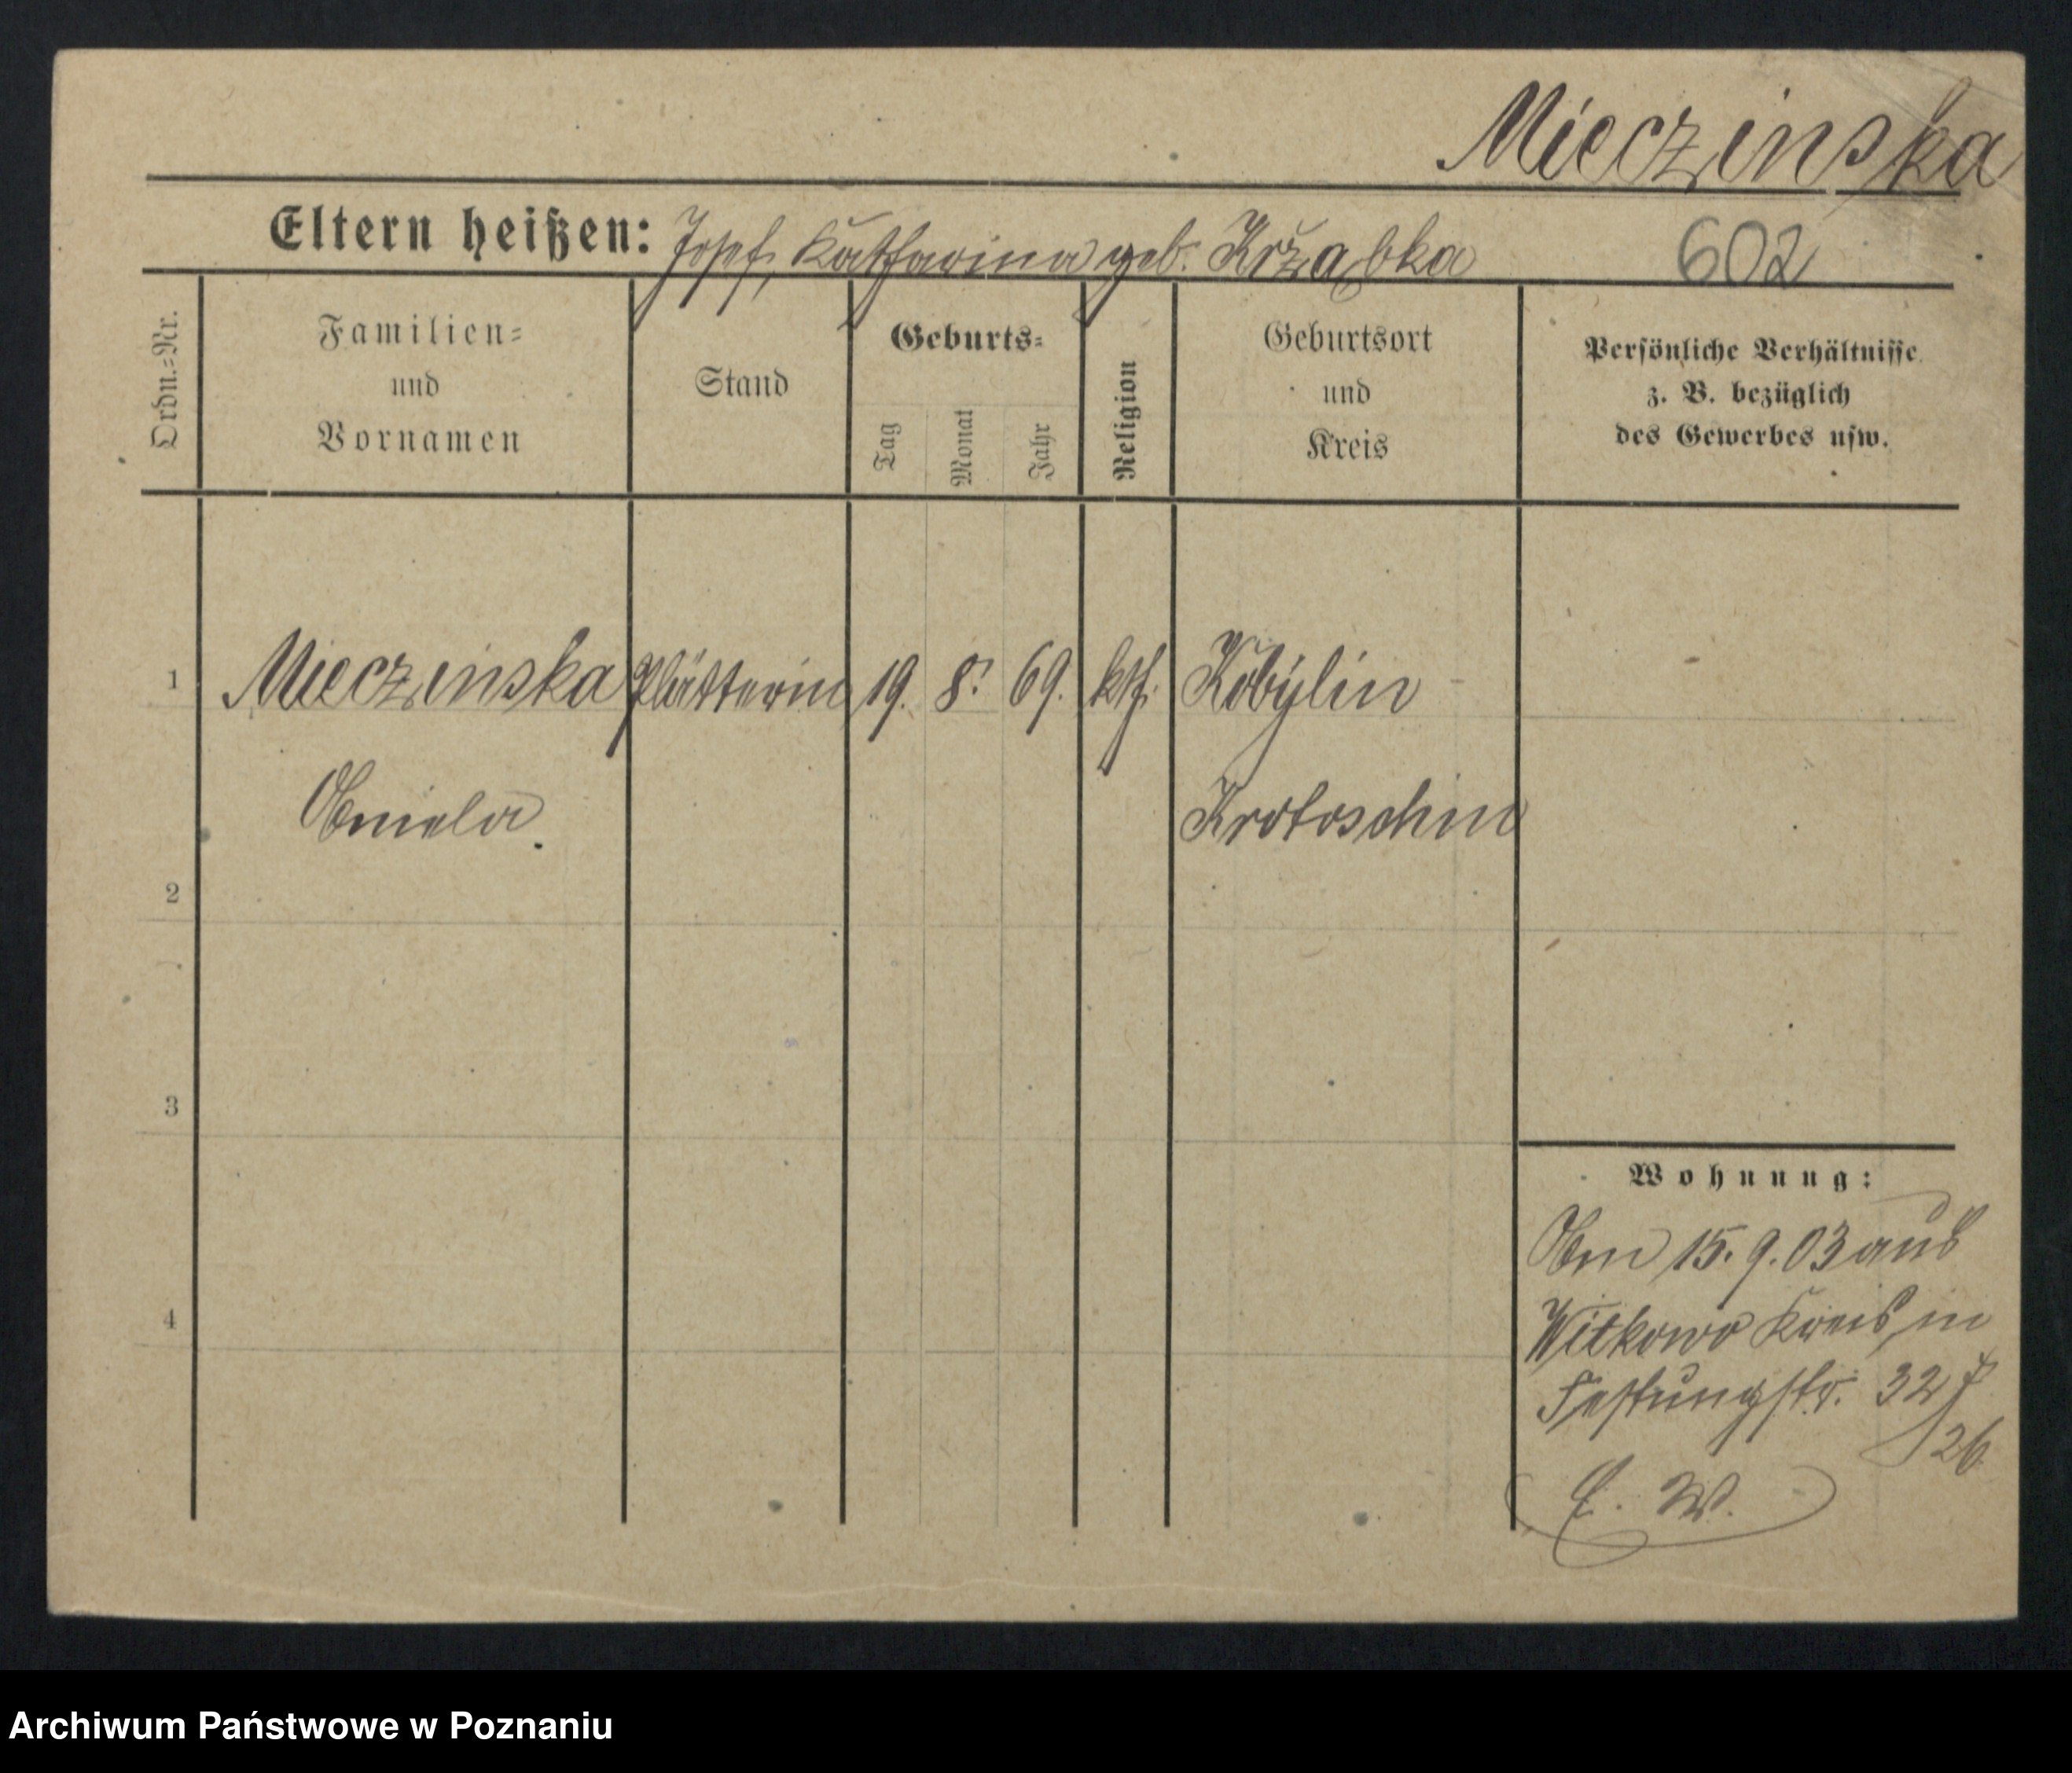 Mieczinska
Eltern heißen: Josef, Katharina geb. Krząbka
602
Ordn.=Nr.
Familien=
und
Vornamen
Stand
Geburts=
Tag
Monat
Jahr
Religion
Geburtsort
und
Kreis
Persönliche Verhältnisse
z. B. bezüglich
des Gewerbes usw.
1 Mieczinska Plätterin 19. 8. 69. kth. Kobylin
Krotoschin
2
3
4
Wohnung:
Am 15.9.03 aus
Witkowo Kreis, in
Festungstr. 32
26
E. W.
Archiwum Państwowe w Poznaniu